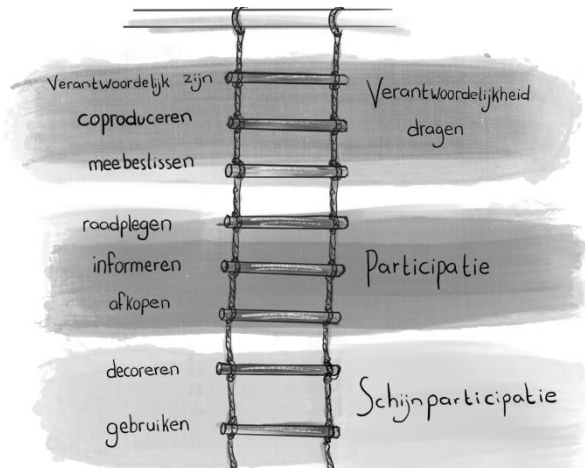 Verantwoordelijk zijn
coproduceren
meebeslissen
Verantwoordelijkheid
dragen
raadplegen
informeren
afkopen
Participatie
decoreren
gebruiken
Schijnparticipatie